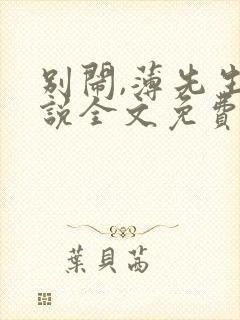 別鬧,薄先生
說全文免費
葉貝茜